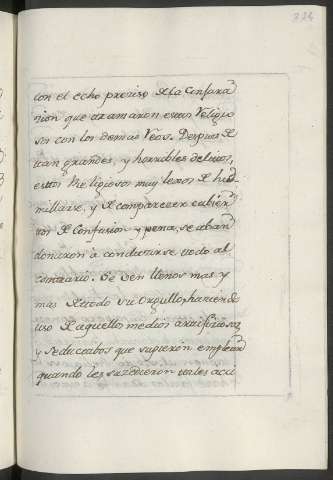 324
con el echo preciso de la Confara
zion que tramaron estos Religio
sos con los demas Reos. Despues de
tan grandes, y horribles delitos,
estos Religiosos muy lexos de hu
millarse, y de comparecer cubier
tos de Confusion y pena, se aban
donaron a conducirse todo al
contrario. Se ven llenos mas y
mas de todo su Orgullo, haciendo
uso de aquellos medios artifiziosos
y seductabos que supieron emplear
quando les suzedieron tales acci